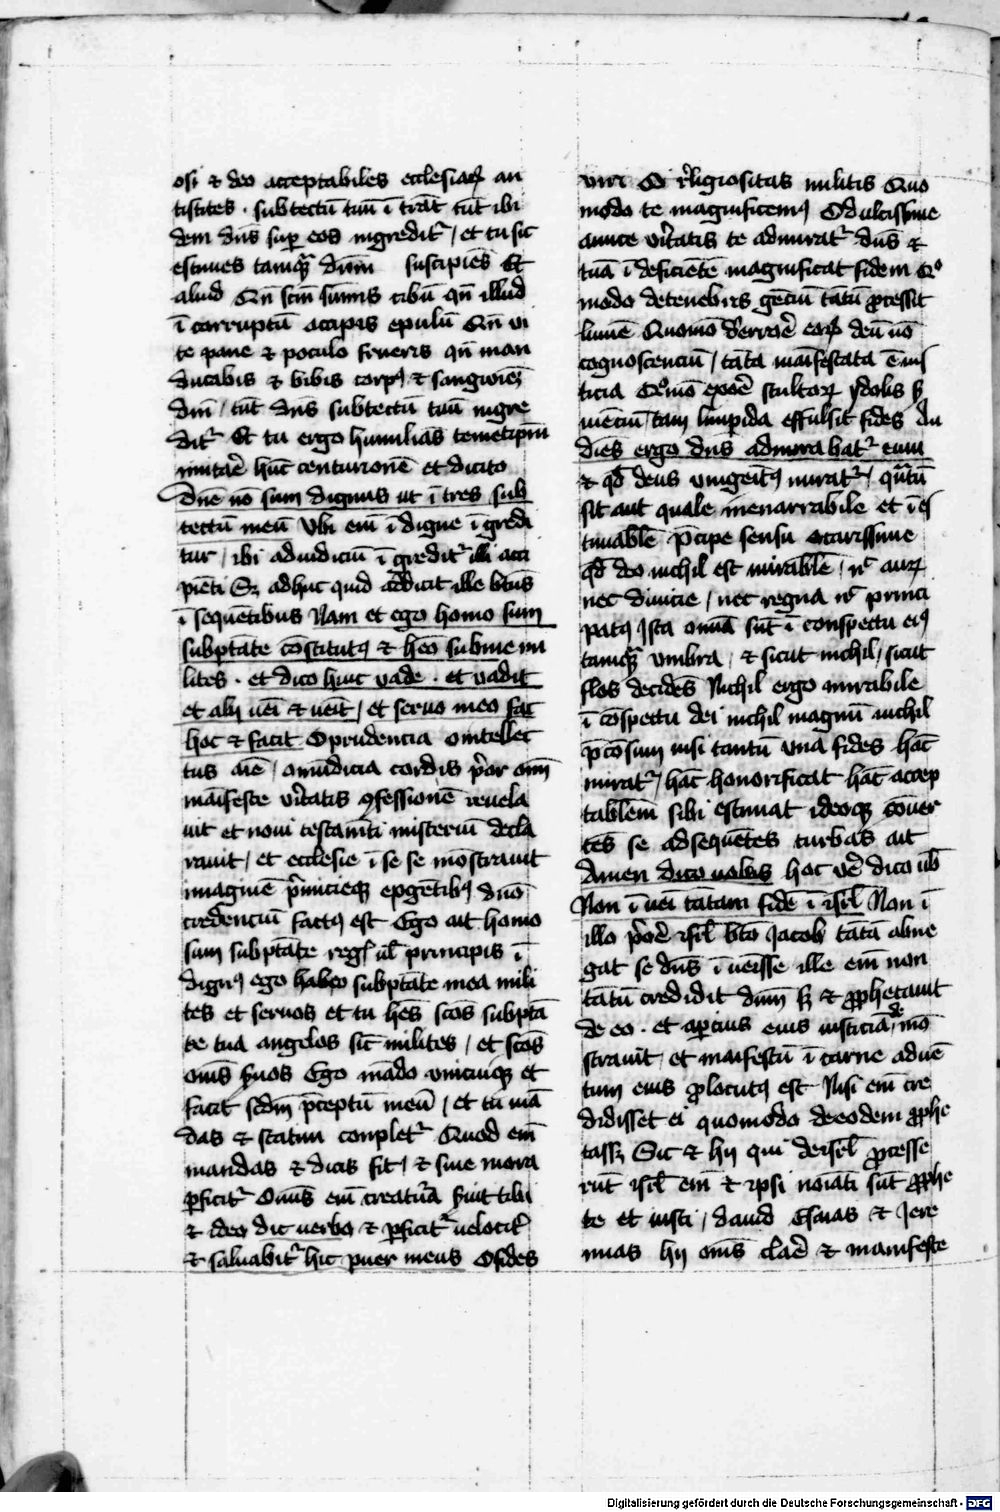 osi et deo acceptabiles ecclesiaꝝ an
tistites . subtectū tuū ītrāt tūt ibi
dem dn̄s suꝑ eos ingredit᷑ / et tu sic
estimes tamqᷓ dūm suscipiēs Et
aliud Qn̄ scm̄ sumis cibū qn̄ illud
ī corruptū accipis epulū Qn̄ vi
te pane et poculo frueris qn̄ man
ducabis et bibis corpꝰ et sanguinē
dn̄i / tūt dn̄s subtectū tuū ingre
dit᷑ Et tu ergo humiliās temetip̄m
imitarē hūc centurionē et dicito
Dn̄e nō sum dignus ut ītres sub
tectū meū Vbi em̄ īdigne īgredi
tur / ibi adiudiciū īgredit᷑ illi acci
piēti Sꝫ adhuc quid addicit ille bt̄us
īsequētibus Nam et ego homo sum
subptāte cōstitutꝰ et hēo submemi
lites . et dico huic vade . et vadit
et alij uēi et ueīt / et seruo meo fac
hoc et facit O prudencia o intellec
tus aīe / o mūdicia cordis
māifeste vītatis ꝯfessionē reuela
uit et noui testamēti misteriū decla
rauit / et ecclesie ī se se mōstrauit
imaginē p̄miticieqꝫ exgētibꝰ dn̄o
credenciū factꝰ est Ego ait homo
sum subptāte regꝭ ul̄ principis ī
dignꝰ ego habeo subptāte mea mili
tes et seruos et tu hēs sc̄os subptā
te tua angelos sic̄ milites / et sc̄os
om̄s ẜuos Ego mādo vnicuiqꝫ et
facit scdm̄ p̄ceptū meū / et tu mā
das et statim conplet᷑ Quod em̄
mandas et dicis fit / et sine mora
ꝑficit᷑ Om̄is em̄ creatūra ẜuit tibi
et ideo dic uerbo et ꝑficit᷑ uelocit᷑
et saluabit᷑ hic puer meus O fides
viri O rēligiositas militis Quo
modo te magnificemꝰ O dulcissime
amice vītatis te admirat᷑ dn̄s et
tuā īdeficiētē magnificat fidem Qͦ
modo detenebris gēciū tātū ꝓcessit
lumē Quomō derrorē eoꝝ deū nō
cognoscenciū / tāta māifestata ē ius
ticia Qͦmō stultoꝝ ydolis ẜ
uiēciū / tam limpida effulsit fides Au
diēs ergo dn̄s admirabat᷑ eum
et qd̄ deus vnigenitꝰ mirat᷑ / quātū
sit aut quale inenarrabile et īes
timablē p̄cipe sensu o carissime
qd̄ deo nichil est mirablē / nͨ aurꝝ
nec diuicie / nec regna nͨ princi
patꝰ Ista om̄ia sūt ī conspectu eiꝰ
tamqᷓ vmbra / et sicut nichil / sicut
flos decidēs Nichil ergo mirabile
ī cōspectu dei nichil magnū nichil
p̄ciosum nisi tantū vna fides hāc
mirat᷑ / hāc honorificat hāc accep
tablem sibi estimat ideoqꝫ cōuer
tēs se adsequētes turbas ait
Amen dico uobis hoc vē dico ub̄
Non īuēi tātam fidē ī isrl̄ Non ī
illo isrl̄ bt̄o Jacob tātā abne
gat se dn̄s īuenisse ille em̄ non
tātū credidit dūm sꝫ et ꝓphetauit
de eo . et apcius eius iusticiā de mō
strauit / et maifestū ī carne aduē
tum eius ꝓlocutꝰ est Nisi em̄ cre
didisset ei quomodo deeodem ꝓphe
tassꝫ Sic et hij qui deisrl̄ ꝓcesse
rūt isrl̄ em̄ et ipsi noīati sūt ꝓphe
te et iusti / dauid Esaias et Jere
mias hij om̄s clarē et manifeste
Digitalisierung gefördert durch die Deutsche Forschungsgemeinschaft - DFG